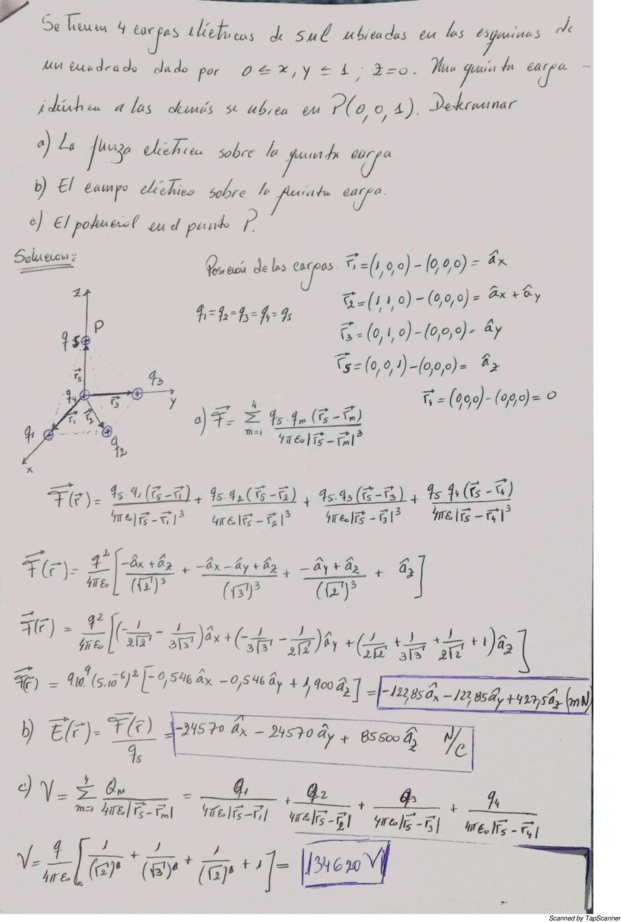 Se tienen 4 cargas eléctricas de 5uC ubicadas en las esquinas de
un cuadrado dado por 0 ≤ x, y ≤ 1 ; z=0. Una quinta carga
idéntica a las demás se ubica en P(0,0,1). Determinar
a) La fuerza eléctrica sobre la quinta carga.
b) El campo eléctrico sobre la quinta carga.
c) El potencial en el punto P.
Solución:
Posición de las cargas r⃗₁=(1,0,0)-(0,0,0)= âx
q₁=q₂=q₃=q₄=q₅
r⃗₂=(1,1,0)-(0,0,0)= âx + ây
r⃗₃=(0,1,0)-(0,0,0)= ây
r⃗₅=(0,0,1)-(0,0,0)= âz
r⃗₁=(0,0,0)-(0,0,0)=0
z
P
q₅
r⃗₅
q₄
q₃
r⃗₃
y
q₁
r⃗₁
r⃗₂
q₂
x
a) F⃗= Σ_{m=1}^{4} q₅·qm (r⃗₅-r⃗m) / 4πε₀|r⃗₅-r⃗m|³
F⃗(r⃗)= q₅·q₁(r⃗₅-r⃗₁)/4πε₀|r⃗₅-r⃗₁|³ + q₅·q₂(r⃗₅-r⃗₂)/4πε₀|r⃗₅-r⃗₂|³ + q₅·q₃(r⃗₅-r⃗₃)/4πε₀|r⃗₅-r⃗₃|³ + q₅·q₄(r⃗₅-r⃗₄)/4πε₀|r⃗₅-r⃗₄|³
F⃗(r⃗)= q²/4πε₀ [ (-âx+âz)/(√2)³ + (-âx-ây+âz)/(√3)³ + (-ây+âz)/(√2)³ + âz ]
F⃗(r⃗) = q²/4πε₀ [ (-1/2√2 - 1/3√3)âx + (-1/3√3 - 1/2√2)ây + (1/2√2 + 1/3√3 + 1/2√2 + 1)âz ]
F⃗(r) = 9·10⁹ (5·10⁻⁶)² [-0,546âx - 0,546ây + 1,900âz] = -122,85âx - 122,85ây + 427,5âz (mN)
b) E⃗(r⃗)= F⃗(r⃗)/q₅ = -24570 âx - 24570 ây + 85500 âz N/C
c) V= Σ_{m=1}^{4} Qm/4πε₀|r⃗₅-r⃗m| = q₁/4πε₀|r⃗₅-r⃗₁| + q₂/4πε₀|r⃗₅-r⃗₂| + q₃/4πε₀|r⃗₅-r⃗₃| + q₄/4πε₀|r⃗₅-r⃗₄|
V= q/4πε₀ [ 1/(√2) + 1/(√3) + 1/(√2) + 1 ] = 134620 V
Scanned by TapScanner